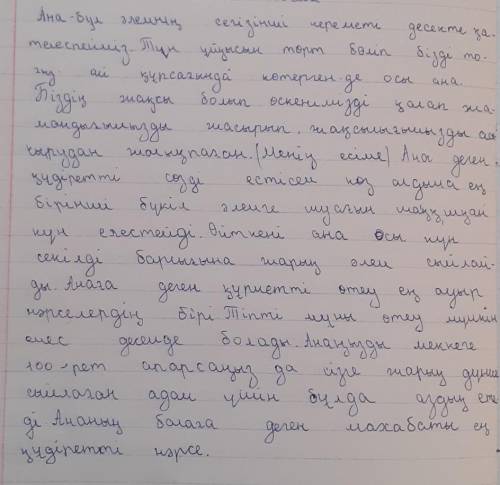 Ана-бұл әлемнің сегізінші кереметі десекте қа-
телеспейміз. Түн ұйқысын төрт бөліп бізді то-
ғыз ай құрсағында көтерген де осы ана.
Біздің жақсы болып өскенімізді қалап жа-
мандығымызды жасырып, жақсылығымызды ас
ырудан жалықпаған. (Менің есіме) Ана деген
құдіретті сөзді естісем көз алдыма ең
бірінші бүкіл әлемге шуағын шашқан
күн елестейді. Өйткені ана осы күн
секілді барлығына жарық әлем сыйлай-
ды. Анаға деген құрметті өтеу ең ауыр
нәрселердің бірі Тіпті мұны өтеу мүмкін
емес десеңде болады. Анаңызды меккеге
100-рет апарсаңыз да сізге жарық дүние
сыйлаған адам үшін бұлда аздық ете
ді Ананың балаға деген махабаты ең
құдіретті нәрсе.